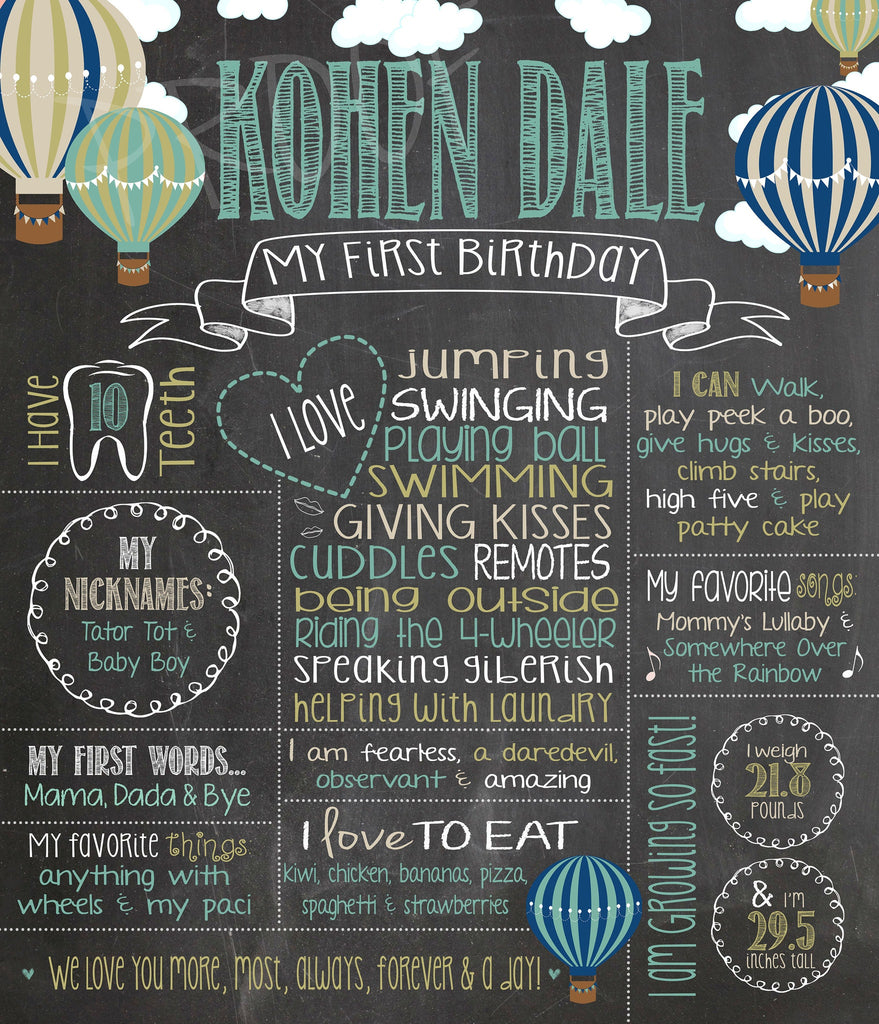 KOHEN DALE
MY FIRST BIRTHDAY
I Have
10
Teeth
I LOVE
jumping
SWINGING
Playing ball
SWIMMING
GIVING KISSES
CUDDLES REMOTES
being outside
Riding the 4-wheeler
speaking giberish
helping with laundry
I CAN Walk,
play peek a boo,
give hugs & kisses,
climb stairs,
high five & play
patty cake
MY
NICKNAMES:
Tator Tot &
Baby Boy
My favorite songs:
Mommy's Lullaby &
Somewhere Over
the Rainbow
MY FIRST WORDS...
Mama, Dada & Bye
I am fearless, a daredevil,
observant & amazing
My favorite things:
anything with
wheels & my paci
I love TO EAT
kiwi, chicken, bananas, pizza,
spaghetti & strawberries
I am Growing so fast!
I weigh
21.8
Pounds
& I'm
29.5
inches tall
We love you more, most, always, forever & a day!